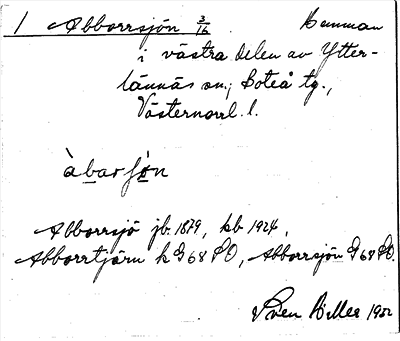 1 Abborrsjön 3/16 Hamman
i västra delen av Ytter-
lännäs sn; Boteå tg.,
Västernorrl. l.
àbarſón
Abborrsjö jb. 1879, kb 1924,
Abborrtjärn k G 68 SO, Abborrsjön G 68 SO.
Sven 1932